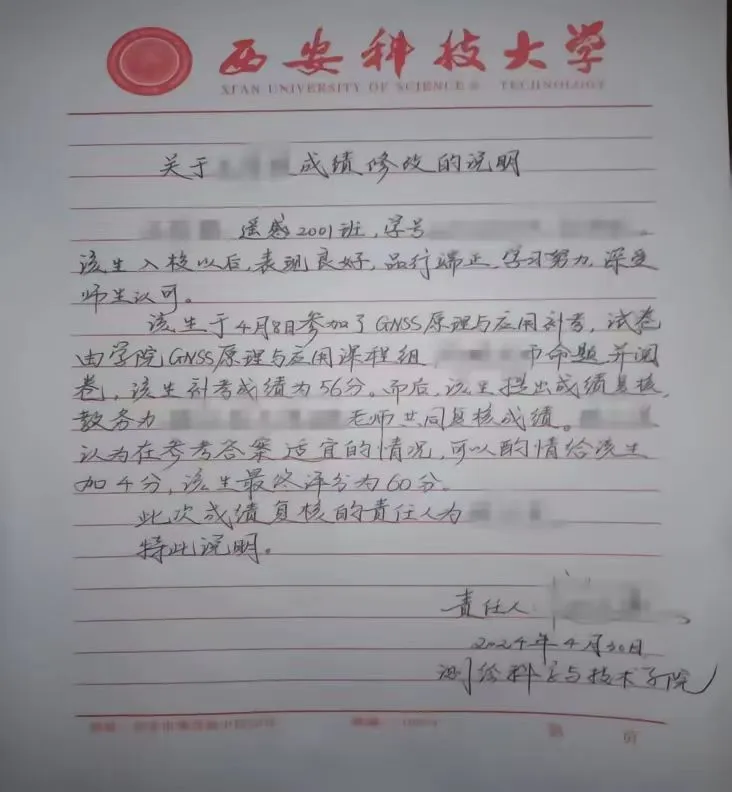 西安科技大学
XI'AN UNIVERSITY OF SCIENCE & TECHNOLOGY
关于 成绩修改的说明
遥感2001班,学号
该生入校以后,表现良好,品行端正,学习努力,深受
师生认可。
该生于4月8日参加了GNSS原理与应用补考,试卷
由学院GNSS原理与应用课程组 命题并阅
卷,该生补考成绩为56分。而后,该生提出成绩复核,
教务办 老师共同复核成绩。
认为在参考答案适宜的情况,可以酌情给该生
加4分,该生最终评分为60分。
此次成绩复核的责任人为
特此说明。
责任人
2024年4月30日
测绘科学与技术学院
第 页